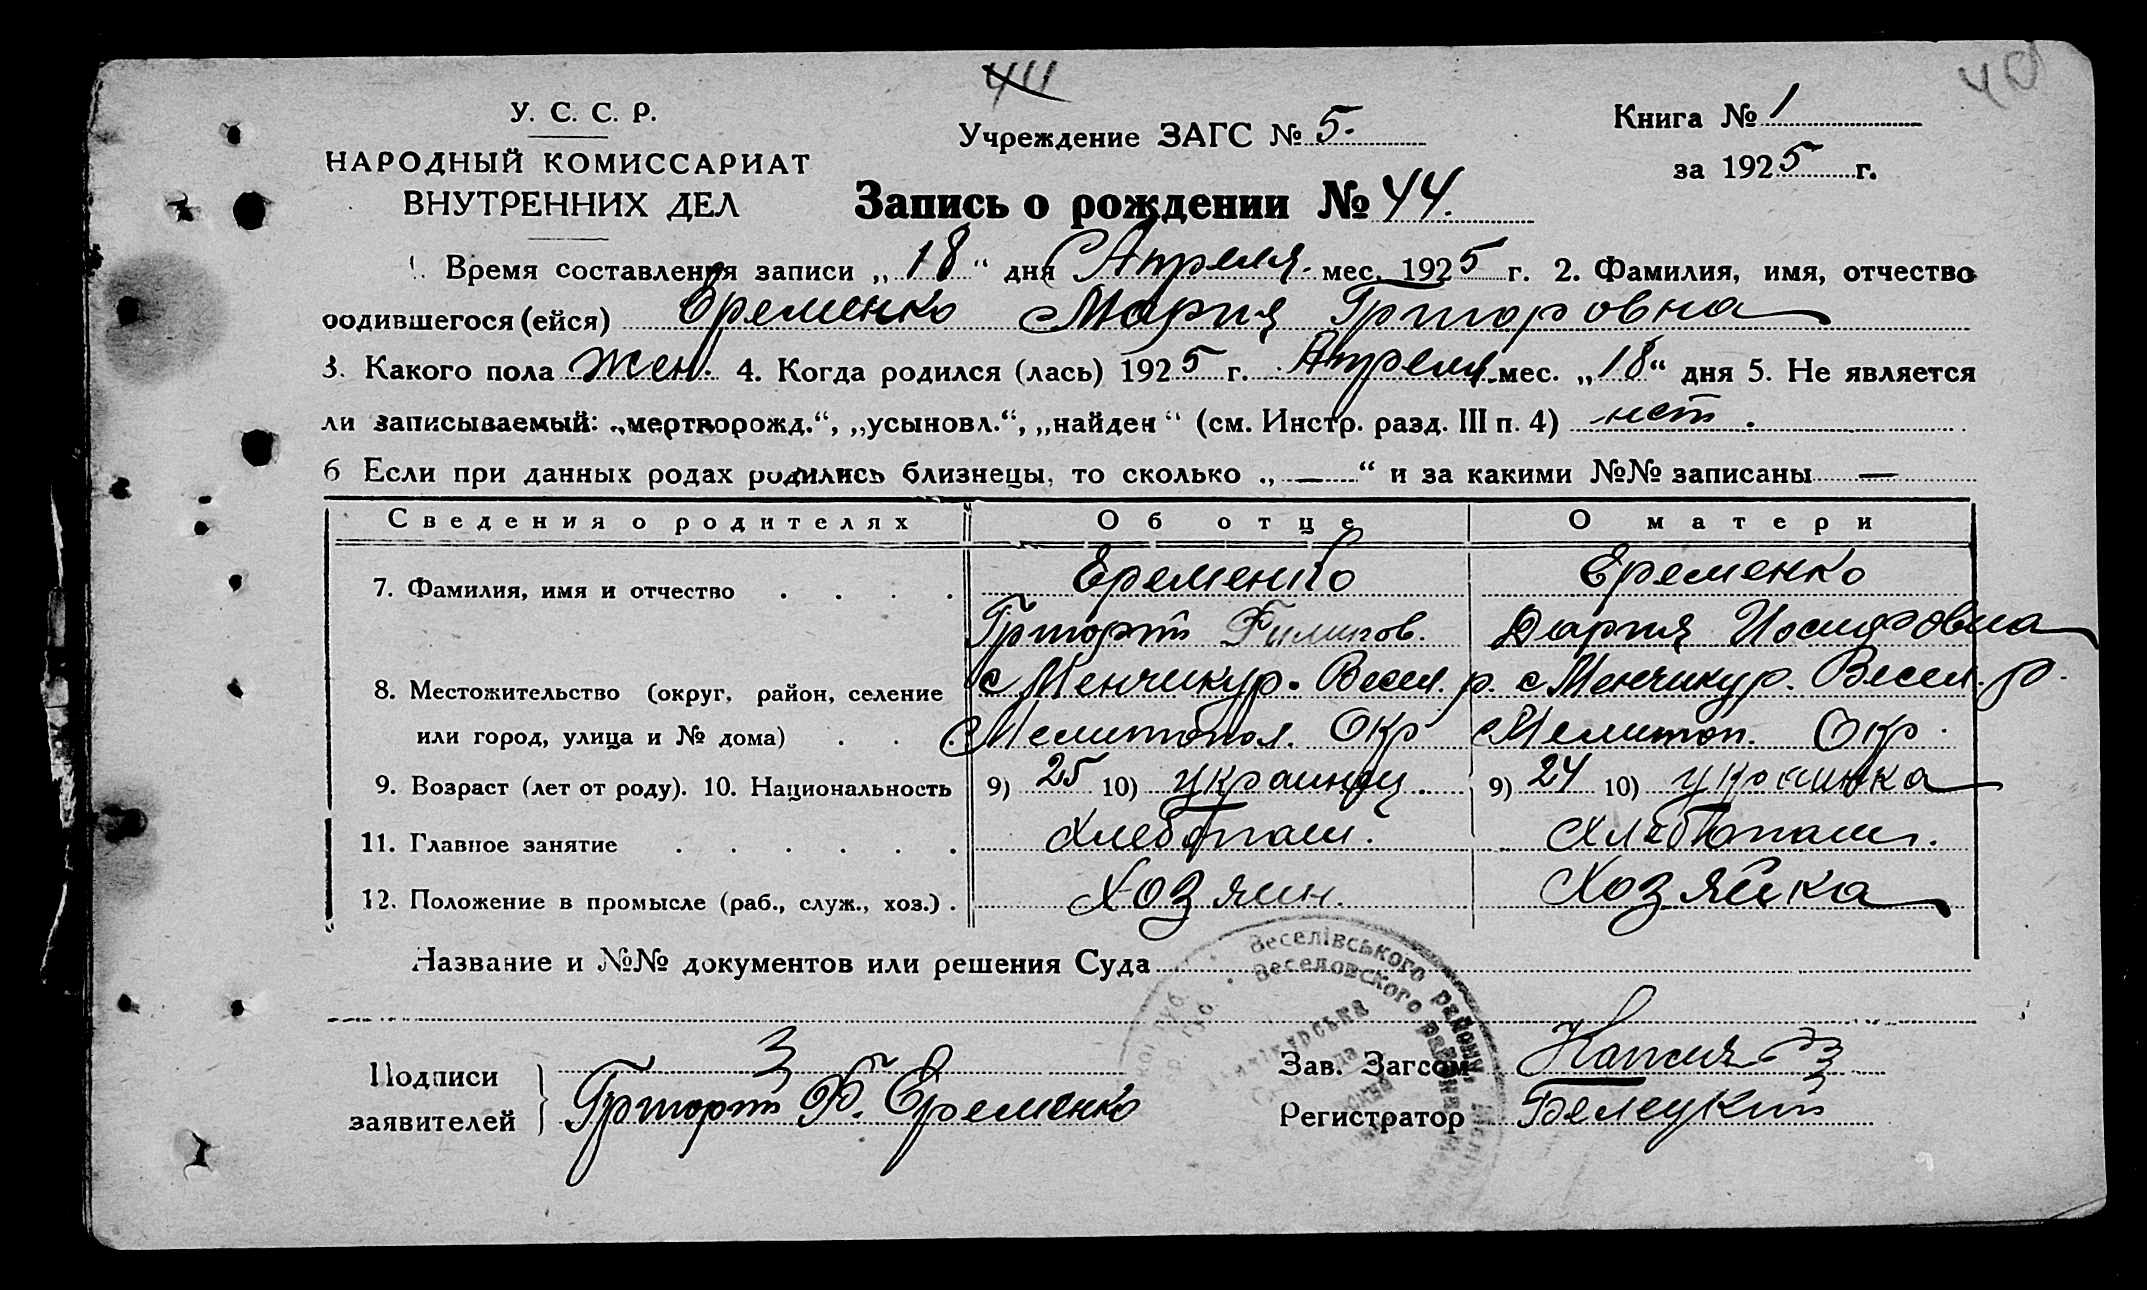 44
40
У. С. С. Р.
НАРОДНЫЙ КОМИССАРИАТ
ВНУТРЕННИХ ДЕЛ
Учреждение ЗАГС № 5.
Книга № 1
за 1925 г.
Запись о рождении № 44.
1. Время составления записи „18“ дня Апреля. мес. 1925 г. 2. Фамилия, имя, отчество
родившегося (ейся) Еременко Мария Григоровна
3. Какого пола жен. 4. Когда родился (лась) 1925 г. Апреля мес. „18“ дня 5. Не является
ли записываемый: „мертворожд.“, „усыновл.“, „найден“ (см. Инстр. разд. III п. 4) нет.
6 Если при данных родах родились близнецы, то сколько „—“ и за какими №№ записаны —
Сведения о родителях Об отце О матери
7. Фамилия, имя и отчество . . . . Еременко Еременко
Григорий Филипов. Дария Иосифовна
8. Местожительство (округ, район, селение с Менчикур. Весел. р. с Менчикур. Весел. р.
или город, улица и № дома) . . . Мелитопол. Окр Мелитоп. Окр.
9. Возраст (лет от роду). 10. Национальность 9) 25 10) украинец. 9) 24 10) украинка
11. Главное занятие . . . . . . Хлебопаш. Хлебопаш.
12. Положение в промысле (раб., служ., хоз.) . Хозяин. Хозяйка
Название и №№ документов или решения Суда
Веселівського району
Веселовского района
Подписи
заявителей
Григорий Ф. Еременко
Зав. Загсом
Регистратор Белецкий